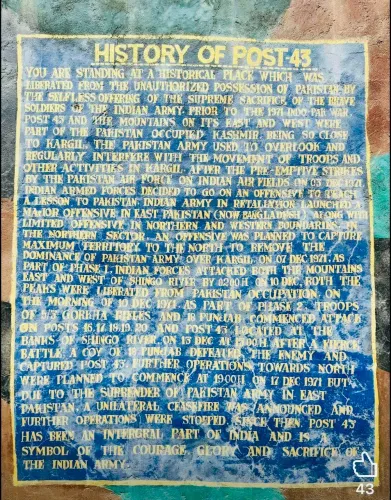 HISTORY OF POST 43
YOU ARE STANDING AT A HISTORICAL PLACE WHICH WAS
LIBERATED FROM THE UNAUTHORIZED POSSESSION OF PAKISTAN BY
THE SELFLESS OFFERING OF THE SUPREME SACRIFICE OF THE BRAVE
SOLDIERS OF THE INDIAN ARMY. PRIOR TO THE 1971 INDO-PAK WAR,
POST 43 AND THE MOUNTAINS ON ITS EAST AND WEST WERE
PART OF THE PAKISTAN OCCUPIED KASHMIR. BEING SO CLOSE
TO KARGIL, THE PAKISTAN ARMY USED TO OVERLOOK AND
REGULARLY INTERFERE WITH THE MOVEMENT OF TROOPS AND
OTHER ACTIVITIES IN KARGIL. AFTER THE PRE-EMPTIVE STRIKES
BY THE PAKISTAN AIR FORCE ON INDIAN AIR FIELDS ON 03 DEC 1971,
INDIAN ARMED FORCES DECIDED TO GO ON AN OFFENSIVE TO TEACH
A LESSON TO PAKISTAN. INDIAN ARMY IN RETALIATION LAUNCHED
MAJOR OFFENSIVE IN EAST PAKISTAN (NOW BANGLADESH) ALONG WITH
LIMITED OFFENSIVE IN NORTHERN AND WESTERN BOUNDARIES. IN
THE NORTHERN SECTOR, AN OFFENSIVE WAS PLANNED TO CAPTURE
MAXIMUM TERRITORY TO THE NORTH TO REMOVE THE
DOMINANCE OF PAKISTAN ARMY OVER KARGIL ON 07 DEC 1971. AS
PART OF PHASE 1, INDIAN FORCES ATTACKED BOTH THE MOUNTAINS
EAST AND WEST OF SHINGO RIVER BY 0200H ON 10 DEC, BOTH THE
PEAKS WERE LIBERATED FROM PAKISTAN OCCUPATION ON
THE MORNING OF 10 DEC 1971. AS PART OF PHASE 2, TROOPS
OF GORKHA RIFLES AND 18 PUNJAB COMMENCED ATTACK
ON POSTS 16, 17, 18, 19, 20 AND POST 43 LOCATED AT THE
BANKS OF SHINGO RIVER. ON 13 DEC AT AFTER A FIERCE
BATTLE, A COY OF 18 PUNJAB DEFEATED THE ENEMY AND
CAPTURED POST 43. FURTHER OPERATIONS TOWARDS NORTH
WERE PLANNED TO COMMENCE AT 1900H ON 17 DEC 1971 BUT
DUE TO THE SURRENDER OF PAKISTAN ARMY IN EAST
PAKISTAN, A UNILATERAL CEASEFIRE WAS ANNOUNCED AND
FURTHER OPERATIONS WERE STOPPED. SINCE THEN, POST 43
HAS BEEN AN INTERGRAL PART OF INDIA AND IS A
SYMBOL OF THE COURAGE, GLORY AND SACRIFICE OF
THE INDIAN ARMY.
43